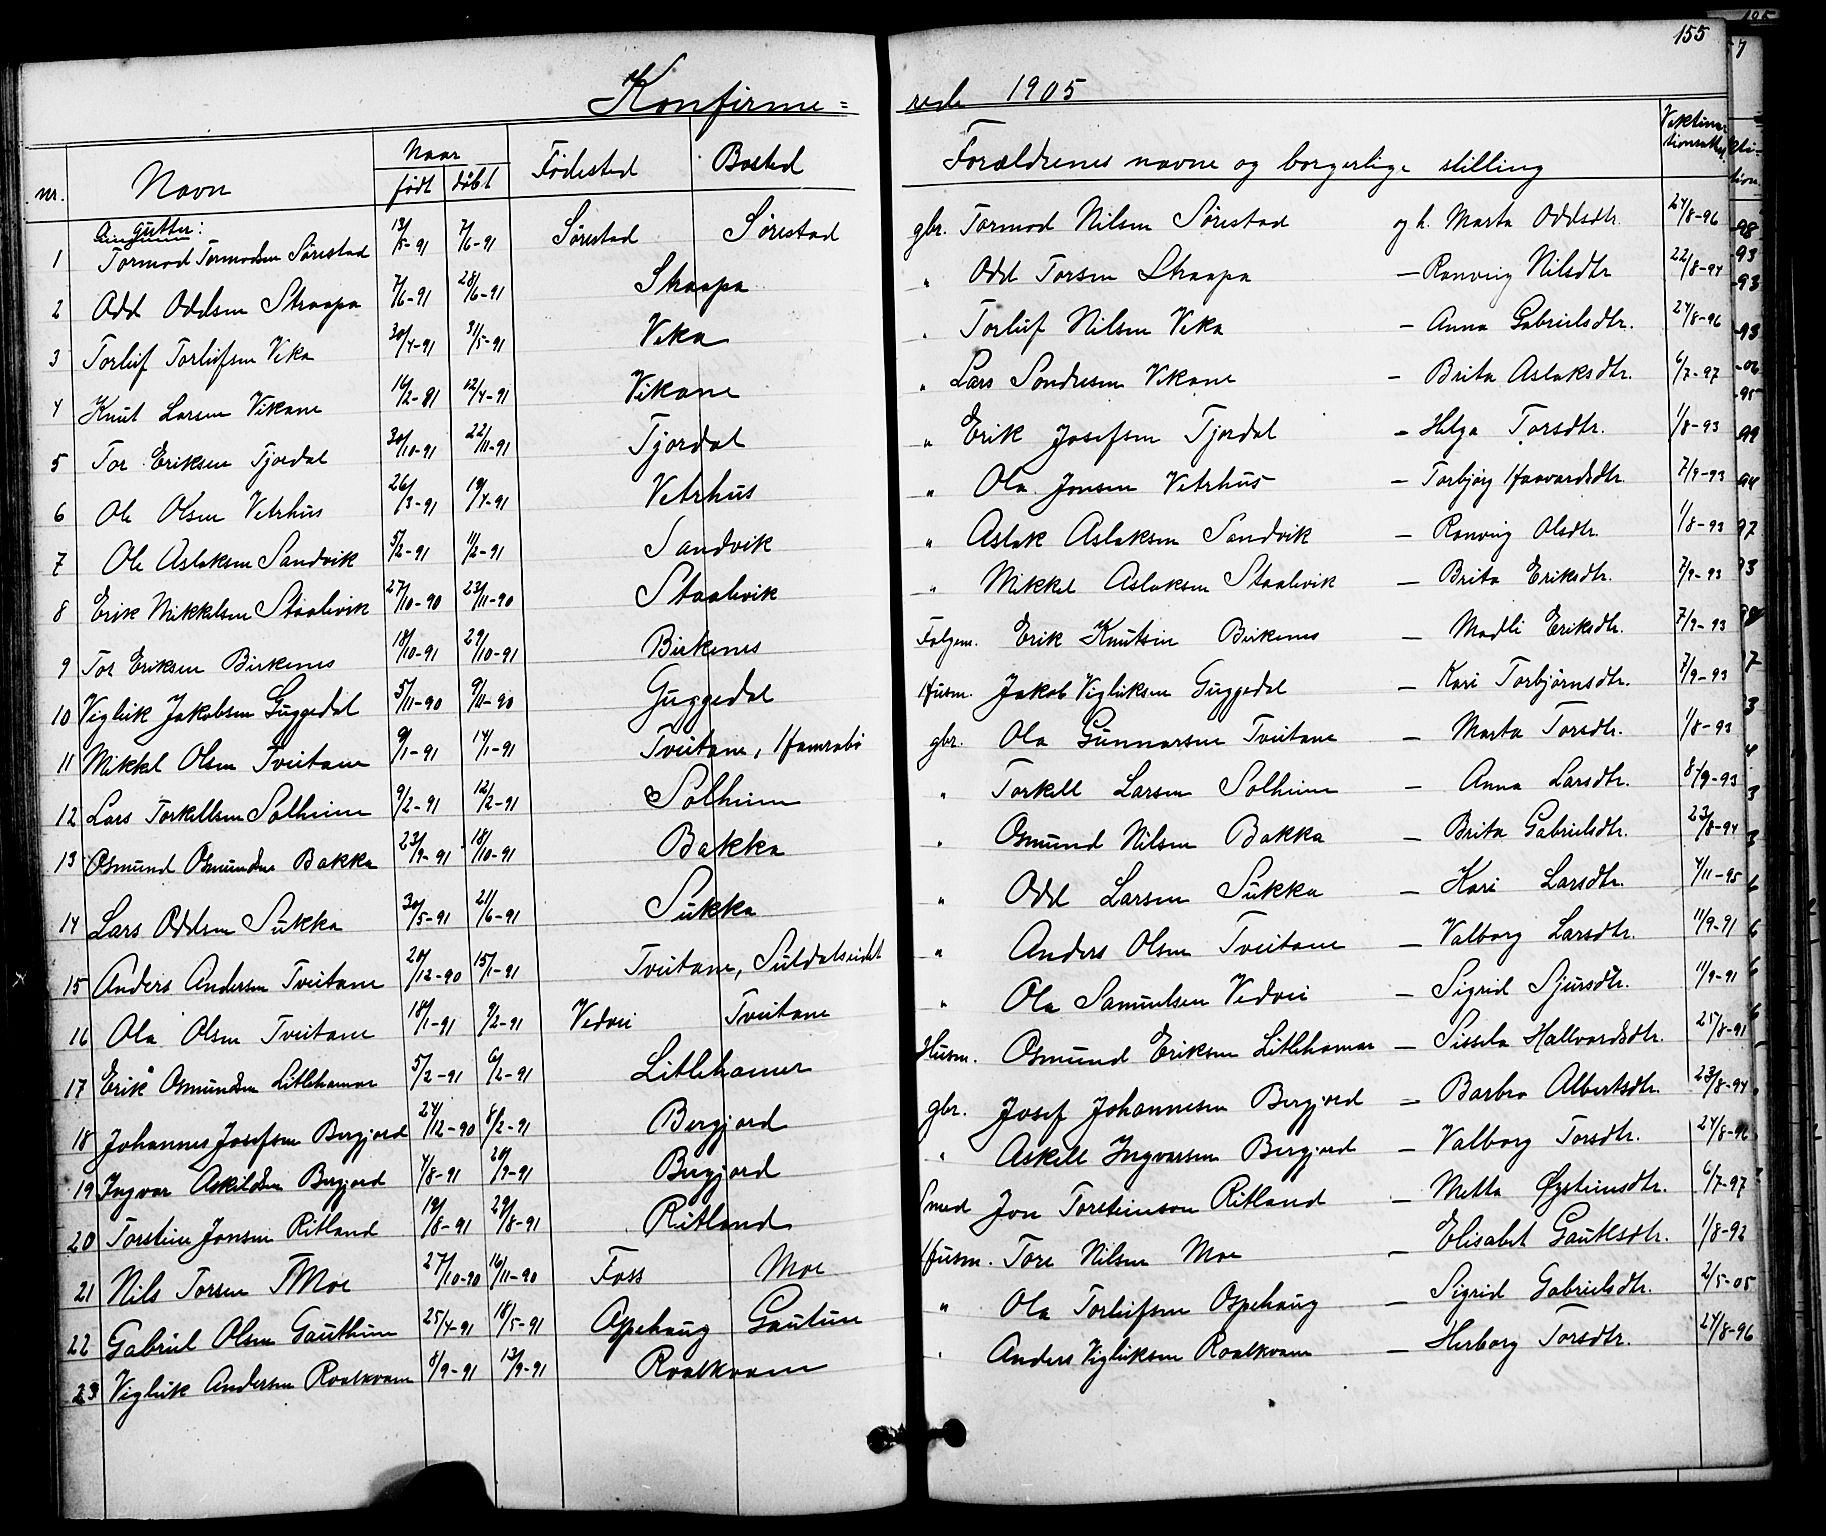 155
Konfirme= rede 1905
nr. Navn Naar født døbt Fødested Bosted Forældrenes navne og borgerlige stilling
A gutter:
1 Tormod Tormodsen Sørestad 13/5-91 7/6-91 Sørestad Sørestad gbr. Tormod Nilsen Sørestad og h. Marta Oddsdtr. 24/8-96
2 Odd Oddsen Straapa 7/6-91 28/6-91 Straapa " Odd Torsen Straapa — Ranveig Nilsdtr 22/8-94
3 Torleif Torleifsen Veka 30/4-91 31/5-91 Veka " Torleif Nilsen Veka — Anna Gabrielsdtr. 24/8-96
4 Knut Larsen Vikane 16/2-81 12/4-91 Vikane " Lars Sondresen Vikane — Brita Aslaksdtr. 6/7-97
5 Tor Eriksen Tjordal 30/10-91 22/11-91 Tjordal " Erik Josefsen Tjordal — Helga Torsdtr. 1/8-93
6 Ole Olsen Vetrhus 26/3-91 19/4-91 Vetrhus " Ola Jonsen Vetrhus — Torbjørg Haavardsdtr. 7/9-93
7 Ole Aslaksen Sandvik 5/2-91 11/2-91 Sandvik " Aslak Aslaksen Sandvik — Ranveig Olsdtr. 1/8-93
8 Erik Mikkelsen Staalevik 27/10-90 23/11-90 Staalevik " Mikkel Aslaksen Staalevik — Brita Eriksdtr. 7/9-93
9 Tor Eriksen Birkenes 18/10-91 29/10-91 Birkenes Folgem. Erik Knutsen Birkenes — Madli Eriksdtr. 7/9-93
10 Vigleik Jakobsen Guggedal 5/11-90 9/11-90 Guggedal Husm. Jakob Vigleiksen Guggedal — Kari Torbjørnsdtr. 7/9-93
11 Mikkel Olsen Tveitane 9/1-91 14/1-91 Tveitane, Hamrabø gbr. Ola Gunnarsen Tveitane — Marta Torsdtr. 1/8-93
12 Lars Torkellsen Solheim 9/2-91 12/2-91 Solheim " Torkell Larsen Solheim — Anna Larsdtr. 8/9-93
13 Osmund Osmundsen Bakka 23/9-91 18/10-91 Bakka " Osmund Nilsen Bakka — Brita Gabrielsdtr. 23/8-94
14 Lars Oddsen Sukka 30/5-91 21/6-91 Sukka " Odd Larsen Sukka — Kari Larsdtr. 4/11-95
15 Anders Andersen Tveitane 20/12-90 15/1-91 Tveitane, Suldalseidet " Anders Olsen Tveitane — Valborg Larsdtr. 11/9-91
16 Ola Olsen Tveitane 18/1-91 9/2-91 Vedvei Tveitane " Ola Samuelsen Vedvei — Sigrid Sjursdtr. 11/9-91
17 Erik Osmundsen Litlehamar 5/2-91 6/2-91 Litlehamar Husm. Osmund Eriksen Litlehamar — Sissela Hallvardsdtr. 25/8-91
18 Johannes Josefsen Bergjord 24/12-90 8/2-91 Bergjord gbr. Josef Johannesen Bergjord — Barbra Albertsdtr. 23/8-94
19 Ingvar Askildsen Bergjord 4/8-91 20/9-91 Bergjord " Askell Ingvarsen Bergjord — Valborg Torsdtr. 24/8-96
20 Torstein Jonsen Ritland 19/8-91 29/8-91 Ritland Smed Jon Torsteinson Ritland — Metta Øysteinsdtr. 6/7-97
21 Nils Torsen Moe 27/10-90 16/11-90 Foss Moe Husm. Tore Nilsen Moe — Elisabet Gautesdtr. 1/8-92
22 Gabriel Olsen Gauthun 25/4-91 18/5-91 Ospehaug Gautun " Ola Torleifsen Ospehaug — Sigrid Gabrielsdtr. 2/5-05
23 Vigleik Andersen Roalkvam 6/9-91 13/9-91 Roalkvam " Anders Vigleiksen Roalkvam — Herborg Torsdtr. 24/8-96